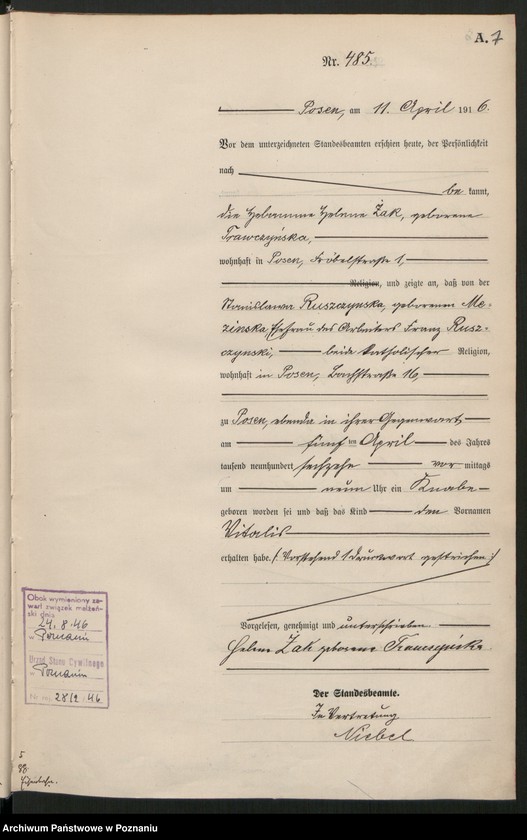 A. 7
Nr. 485
Posen, am 11. April 1916.
Vor dem unterzeichneten Standesbeamten erschien heute, der Persönlichkeit
nach
be kannt,
die Hebamme Helene Żak, geborene
Trawczyńska,
wohnhaft in Posen, Fröbelstraße 1,
Religion, und zeigte an, daß von der
Stanislawa Ruszczynska, geborenen Me-
zinska, Ehefrau des Arbeiters Franz Rusz-
czynski, beide katholischer Religion,
wohnhaft in Posen, Bachstraße 16,
zu Posen, ebenda in ihrer Gegenwart
am fünften April des Jahres
tausend neunhundert sechzehn vor mittags
um neun Uhr ein Knabe
geboren worden sei und daß das Kind den Vornamen
Vitalis
erhalten habe. /: Vorstehend 1 Druckwort gestrichen :/
Vorgelesen, genehmigt und unterschrieben
Helene Żak geborene
Der Standesbeamte.
In Vertretung
Niebel
Obok wymieniony za-
warł związek małżeń-
ski dnia
24. 8. 46
w Poznaniu
Urząd Stanu Cywilnego
w Poznaniu
Nr rej. 2812/46
Archiwum Państwowe w Poznaniu